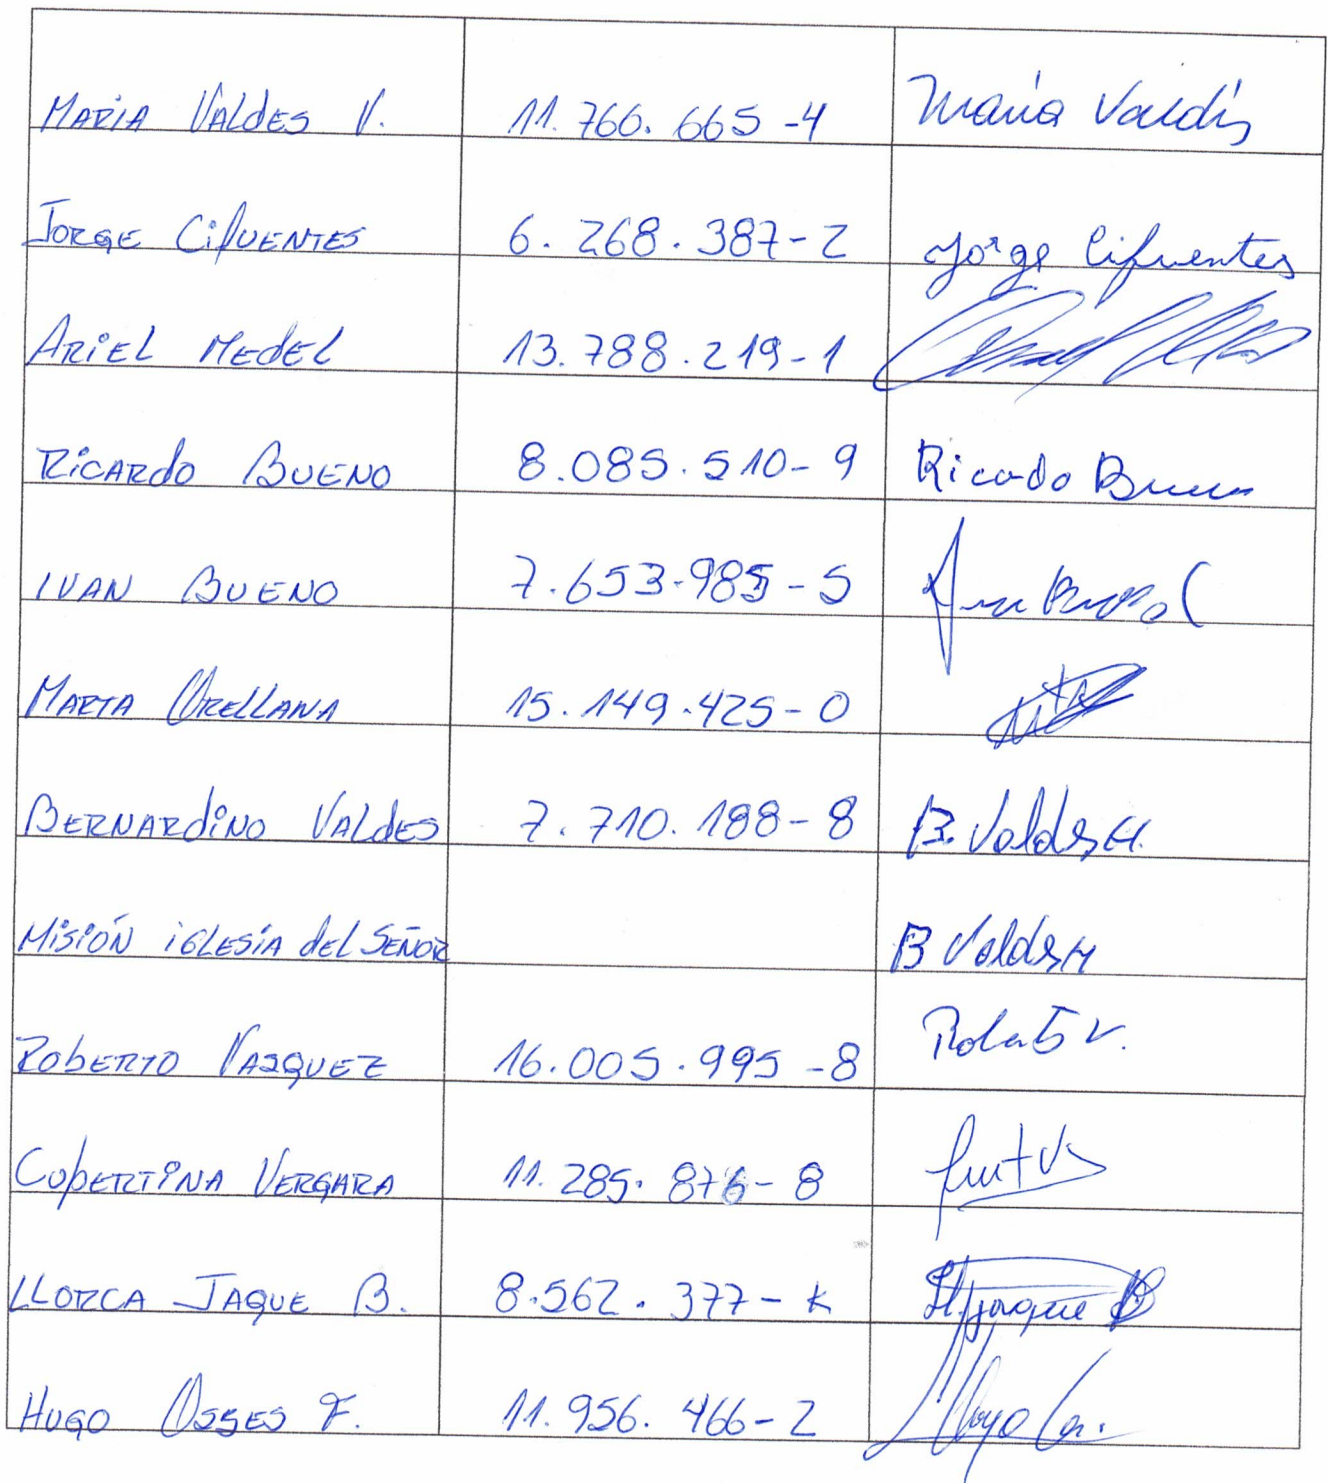 MARIA VALDES V. 11.766.665-4 Maria Valdés
JORGE CIFUENTES 6.268.387-2 Jorge Cifuentes
ARIEL MEDEL 13.788.219-1
RICARDO BUENO 8.085.510-9 Ricardo Bueno
IVAN BUENO 7.653.985-5
MARTA ORELLANA 15.149.425-0
BERNARDINO VALDES 7.710.188-8 B. Valdes H.
MISIÓN IGLESIA del SEÑOR B Valdes H
ROBERTO VASQUEZ 16.005.995-8 Roberto V.
VERGARA 11.285.876-8
LLORCA JAQUE B. 8.562.377-K Ll Jaque B
HUGO OSSES F. 11.956.466-2